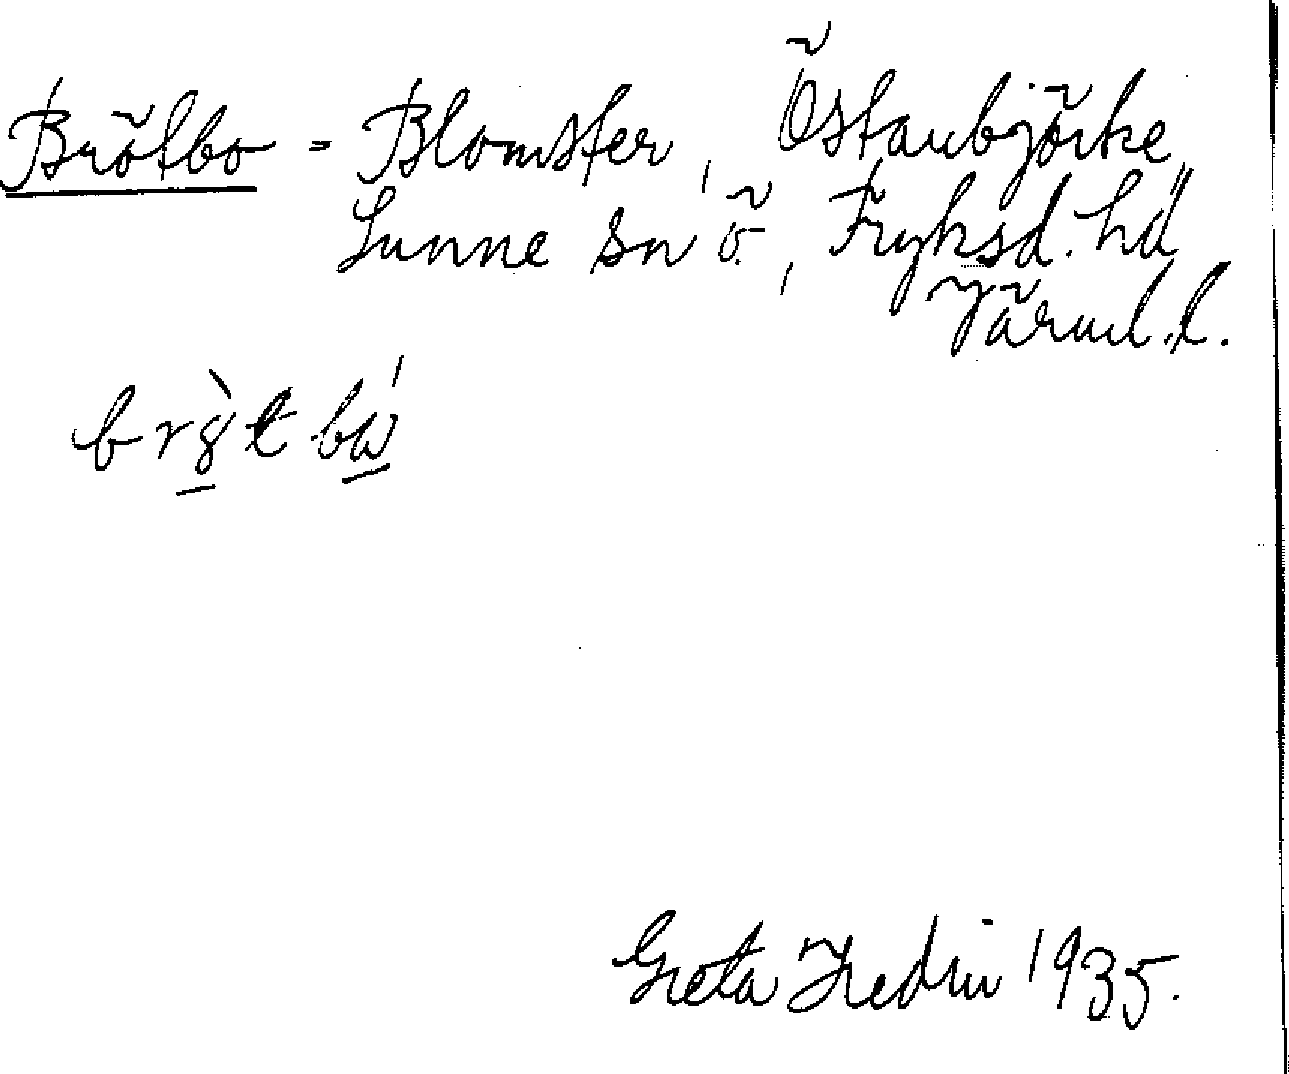 Brötbo - Blomster, Östanbjörke,
Sunne sn ö., Fryksd. hd
Värml. l.
Greta Hedin 1935.